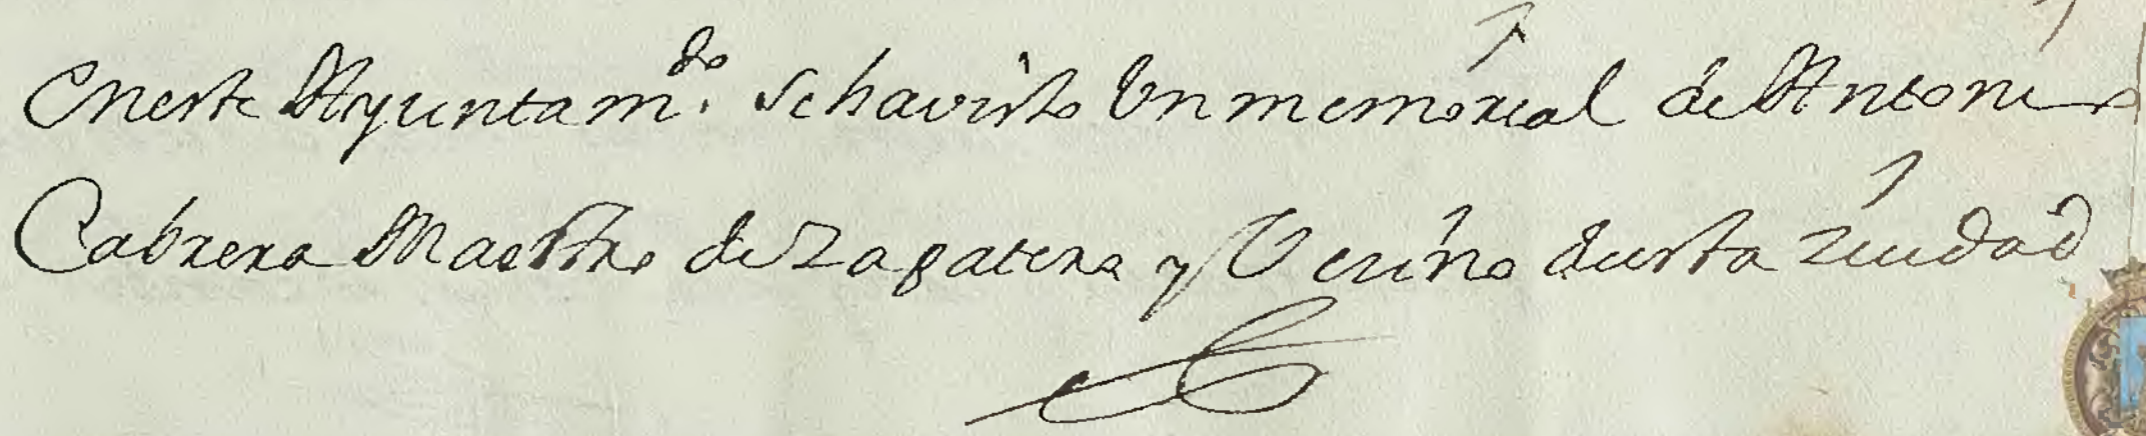 En este Ayuntam.to se ha visto Un memorial de Antonio
Cabrera Maestro de Zapatero y Vecino de esta ziudad